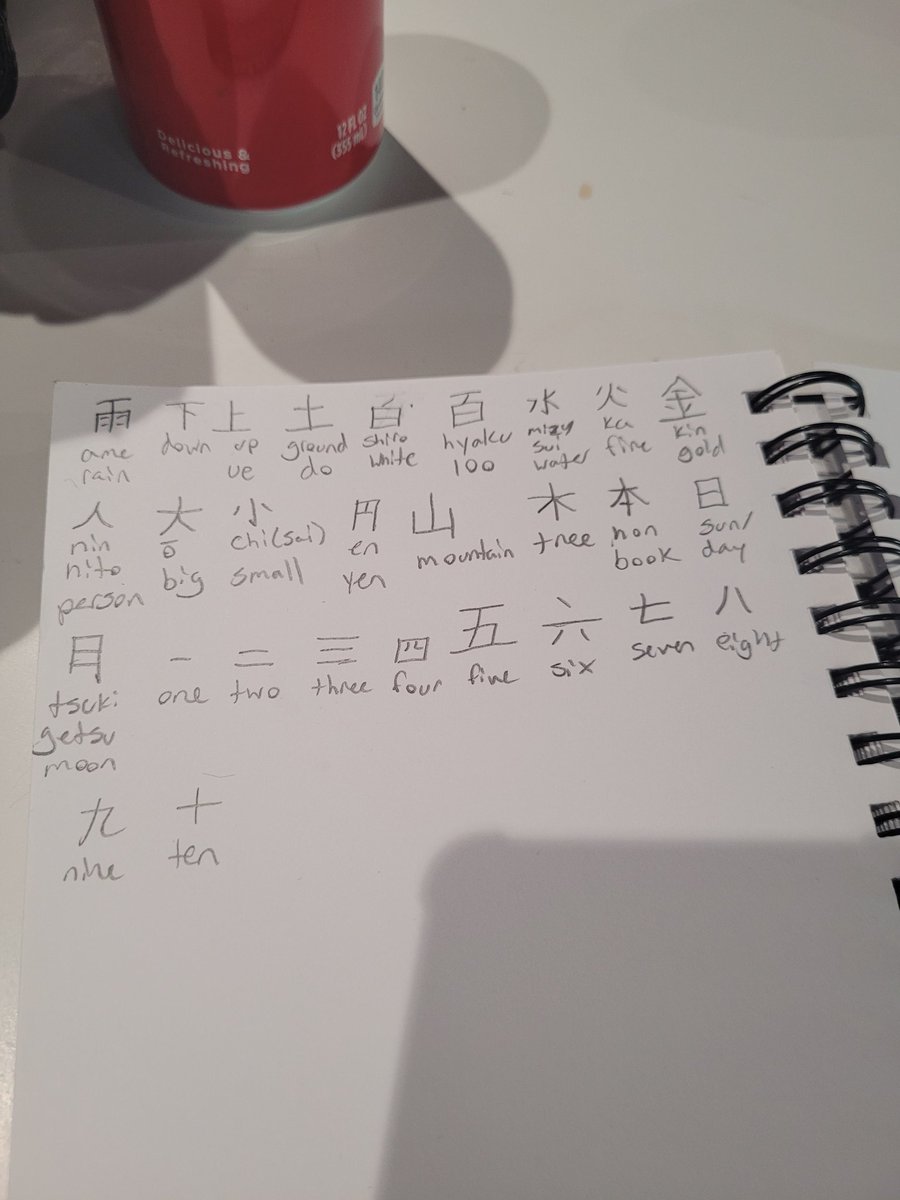 Delicious &
Refreshing
12 FL OZ
(355 ml)
雨 下 上 土 白 百 水 火 金
ame down up ground shiro hyaku mizu ka kin
rain ue do white 100 sui fire gold
water
人 大 小 円 山 木 本 日
nin ō chi(sai) en mountain tree hon sun/
hito big small yen book day
person
月 一 二 三 四 五 六 七 八
tsuki one two three four five six seven eight
getsu
moon
九 十
nine ten